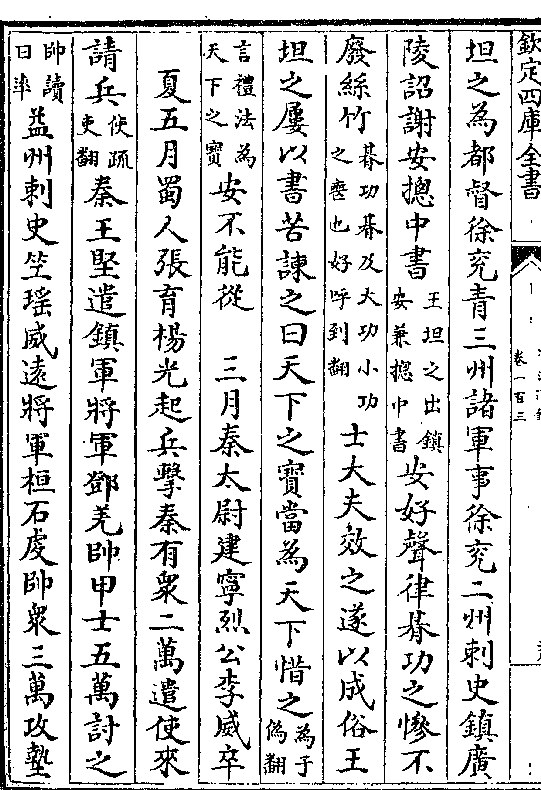 欽定四庫全書
卷一百三
坦之為都督徐兖青三州諸軍事徐兖二州刺史鎮廣
陵詔謝安摠中書王坦之出鎮安兼摠中書安好聲律朞功之慘不
廢絲竹朞功朞及大功小功之喪也好呼到翻士大夫效之遂以成俗王
坦之屢以書苦諫之曰天下之寳當為天下惜之為于偽翻
言禮法為天下之寳安不能從　三月秦太尉建寧烈公李威卒
夏五月蜀人張育楊光起兵擊秦有衆二萬遣使來
請兵使疏吏翻秦王堅遣鎮軍將軍鄧羌帥甲士五萬討之
帥讀曰率益州刺史竺瑶威遠將軍桓石䖍帥衆三萬攻墊